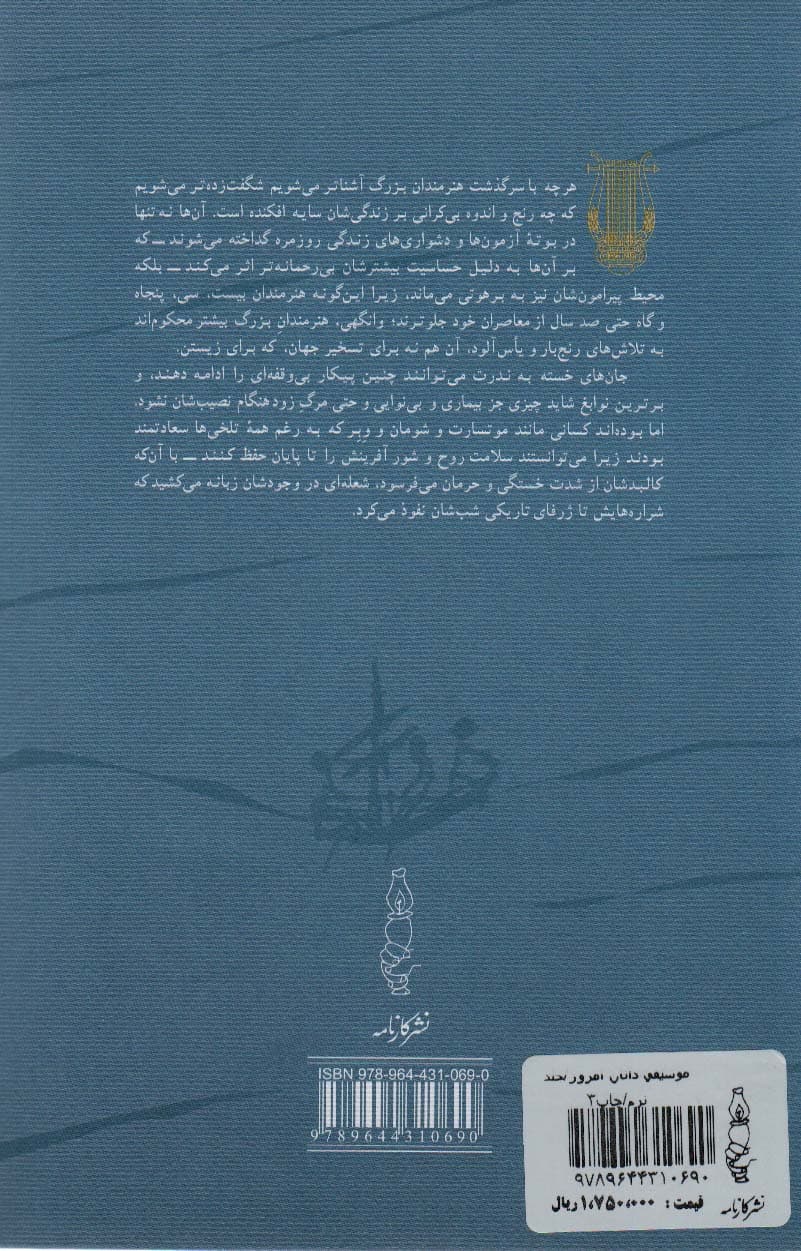 هرچه با سرگذشت هنرمندان بزرگ آشناتر می‌شویم شگفت‌زده‌تر می‌شویم
که چه رنج و اندوه بی‌کرانی بر زندگی‌شان سایه افکنده است. آن‌ها نه‌تنها
در بوتهٔ آزمون‌ها و دشواری‌های زندگی روزمره گداخته می‌شوند ــ که
بر آن‌ها به دلیل حساسیت بیشترشان بی‌رحمانه‌تر اثر می‌کند ــ بلکه
محیط پیرامون‌شان نیز به برهوتی می‌ماند، زیرا این‌گونه هنرمندان بیست، سی، پنجاه
و گاه حتی صد سال از معاصران خود جلوترند؛ وانگهی، هنرمندانِ بزرگ بیشتر محکوم‌اند
به تلاش‌های رنج‌بار و یأس‌آلود، آن هم نه برای تسخیر جهان، که برای زیستن.
جان‌های خسته به ندرت می‌توانند چنین پیکار بی‌وقفه‌ای را ادامه دهند، و
برترین نوابغ شاید چیزی جز بیماری و بی‌نوایی و حتی مرگِ زودهنگام نصیب‌شان نشود.
اما بوده‌اند کسانی مانند موتسارت و شومان و وِبِر که به رغم همهٔ تلخی‌ها سعادتمند
بودند زیرا می‌توانستند سلامت روح و شور آفرینش را تا پایان حفظ کنند ــ با آن‌که
کالبدشان از شدت خستگی و حرمان می‌فرسود، شعله‌ای در وجودشان زبانه می‌کشید که
شراره‌هایش تا ژرفای تاریکی شب‌شان نفوذ می‌کرد.
نشر کارنامه
ISBN 978-964-431-069-0
9789644310690
موسیقی دانان امروز/جلد
نرم/چاپ۳
۹۷۸۹۶۴۴۳۱۰۶۹۰
قیمت : ۱،۷۵۰،۰۰۰ ریال
نشر کارنامه